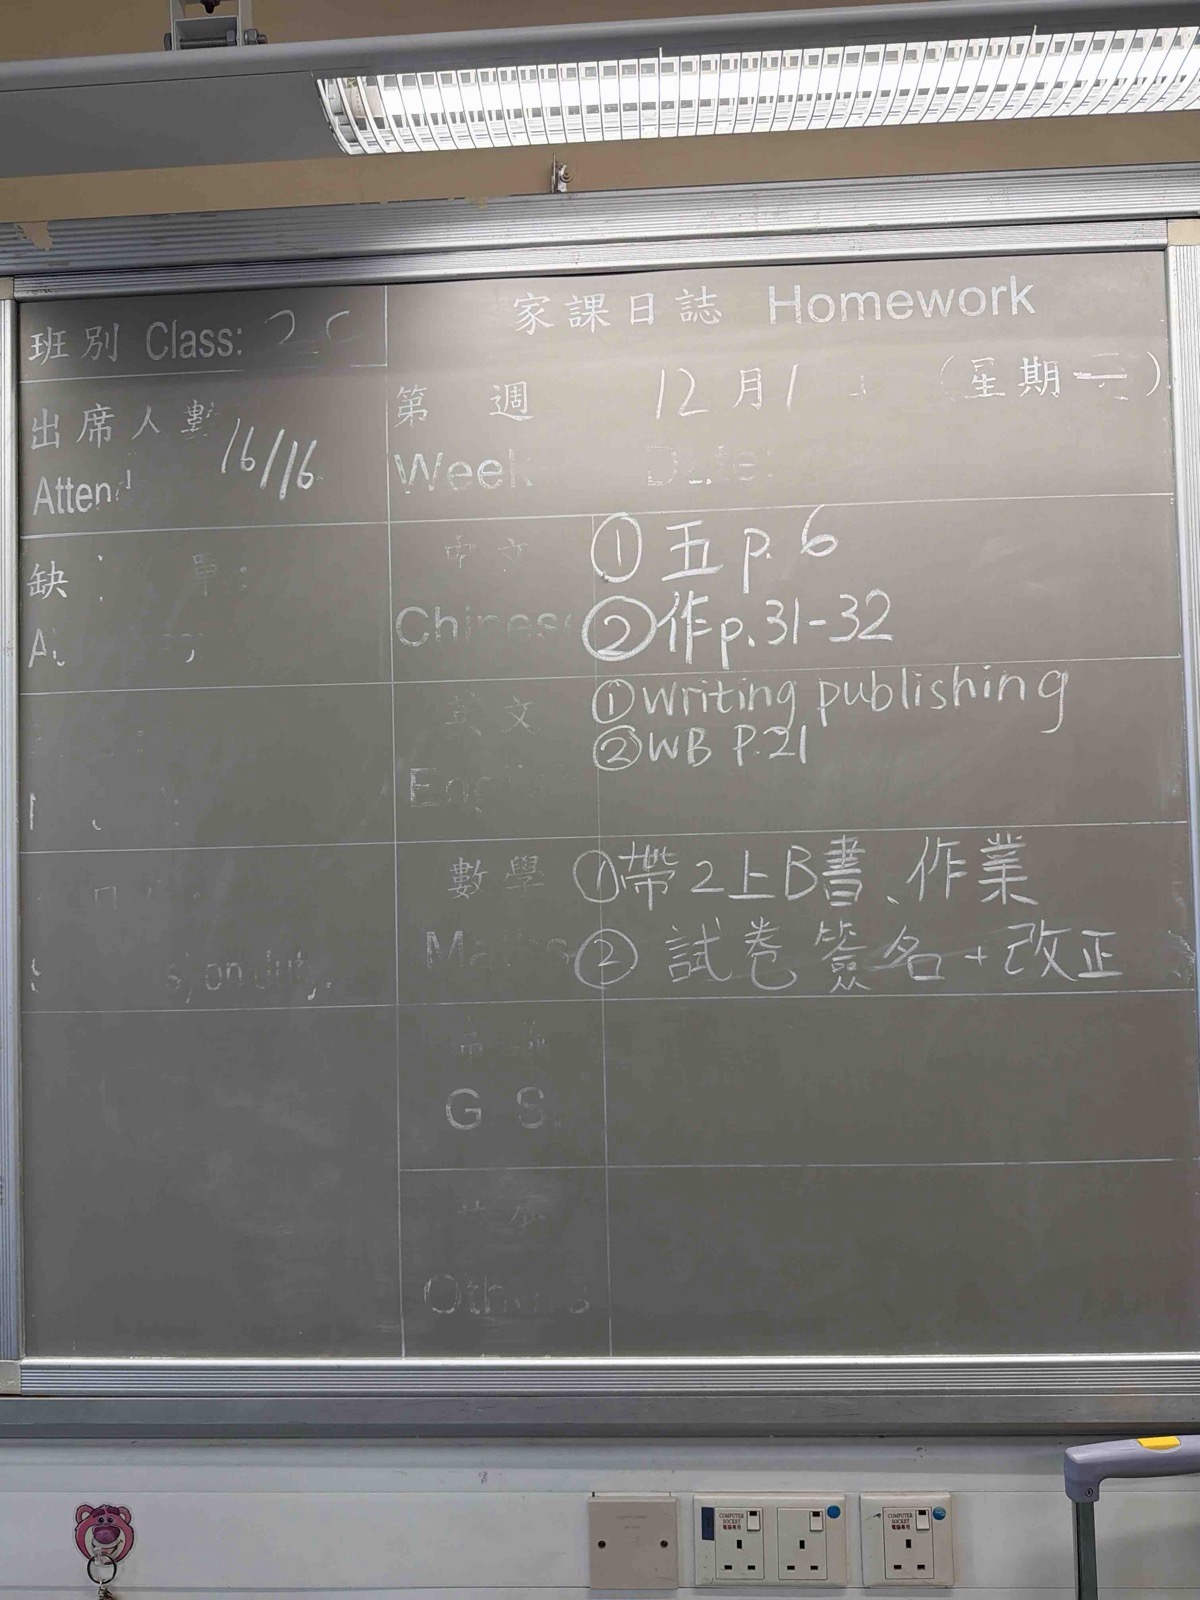 班別 Class: 2C
家課日誌 Homework
出席人數 16/16
第 週 12月1 (星期一)
Week Date:
缺
中文
Chinese
① 五 p. 6
② 作 p.31-32
英文
① Writing publishing
② WB P.21
數學
① 帶2上B書、作業
② 試卷簽名+改正
s) on duty:
G.S.
Others
COMPUTER SOCKET
電腦專用
COMPUTER SOCKET
電腦專用